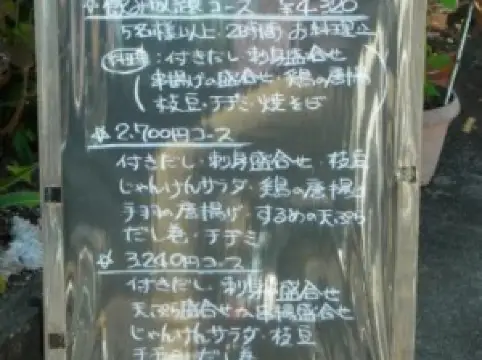 飲み放題コース ¥4,320
5名様以上・2時間 お料理
料理：付きだし 刺身盛合せ
串揚げの盛合せ・鶏の唐揚
枝豆・チヂミ・焼そば
2,700円コース
付きだし・刺身盛合せ・枝豆
じゃんけんサラダ・鶏の唐揚
の唐揚げ・するめの天ぷら
だし巻・チヂミ
3,240円コース
付きだし・刺身盛合せ
天ぷら盛合せ 串揚盛合せ
じゃんけんサラダ・枝豆
チヂミ だし巻